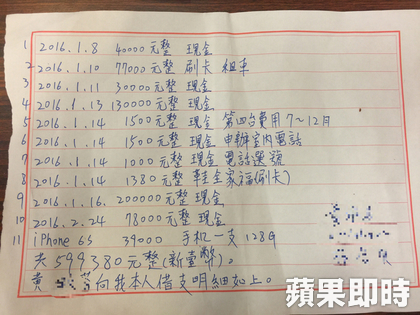 1 2016.1.8 40000元整 現金
2 2016.1.10 77000元整 刷卡 組車
3 2016.1.11 30000元整 現金
4 2016.1.13 130000元整 現金
5 2016.1.14 1500元整 現金 第四台費用7~12月
6 2016.1.14 1500元整 現金 申辦室內電話
7 2016.1.14 1000元整 現金 電話選號
8 2016.1.14 1380元整 鞋全家福(刷卡)
9 2016.1.16. 200000元整 現金
10 2016.2.24 78000元整 現金
11 iPhone 6S 39000 手机一支 128G
共599380元整(新臺幣)。
黃 向我本人借支明細如上。
蘋果即時